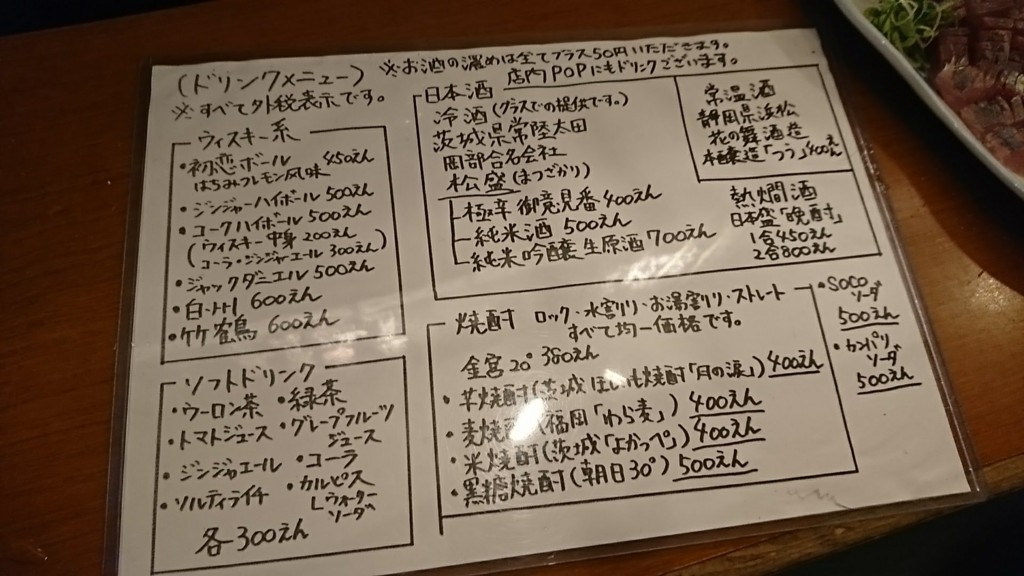 (ドリンクメニュー)
※すべて外税表示です。
※お酒の濃めは全てプラス50円いただきます。
店内POPにもドリンクございます。
ウィスキー系
・初恋ボール 450えん
はちみつレモン風味
・ジンジャーハイボール 500えん
・コークハイボール 500えん
(ウィスキー中身 200えん
コーラ・ジンジャエール 300えん)
・ジャックダニエル 500えん
・白い 600えん
・竹鶴 600えん
ソフトドリンク
・ウーロン茶 ・緑茶
・トマトジュース ・グレープフルーツ
ジュース
・ジンジャエール ・コーラ
・ソルティライチ ・カルピス
ウォーター
ソーダ
各300えん
日本酒
冷酒(グラスでの提供です。)
茨城県常陸太田
岡部合名会社
松盛(まつざかり)
極辛 御意見番 400えん
純米酒 500えん
純米吟醸生原酒 700えん
常温酒
静岡県浜松
花の舞酒造
本醸造「つう」400えん
熱燗酒
日本盛「晩酌」
1合450えん
2合800えん
焼酎 ロック・水割り・お湯割り・ストレート
すべて均一価格です。
金宮20° 380えん
・芋焼酎(茨城 ほしいも焼酎「月の涙」) 400えん
・麦焼酎(福岡「わら麦」) 400えん
・米焼酎(茨城「よかっぺ」) 400えん
・黒糖焼酎(朝日30°) 500えん
・SOCO
ソーダ
500えん
・カンパリ
ソーダ
500えん